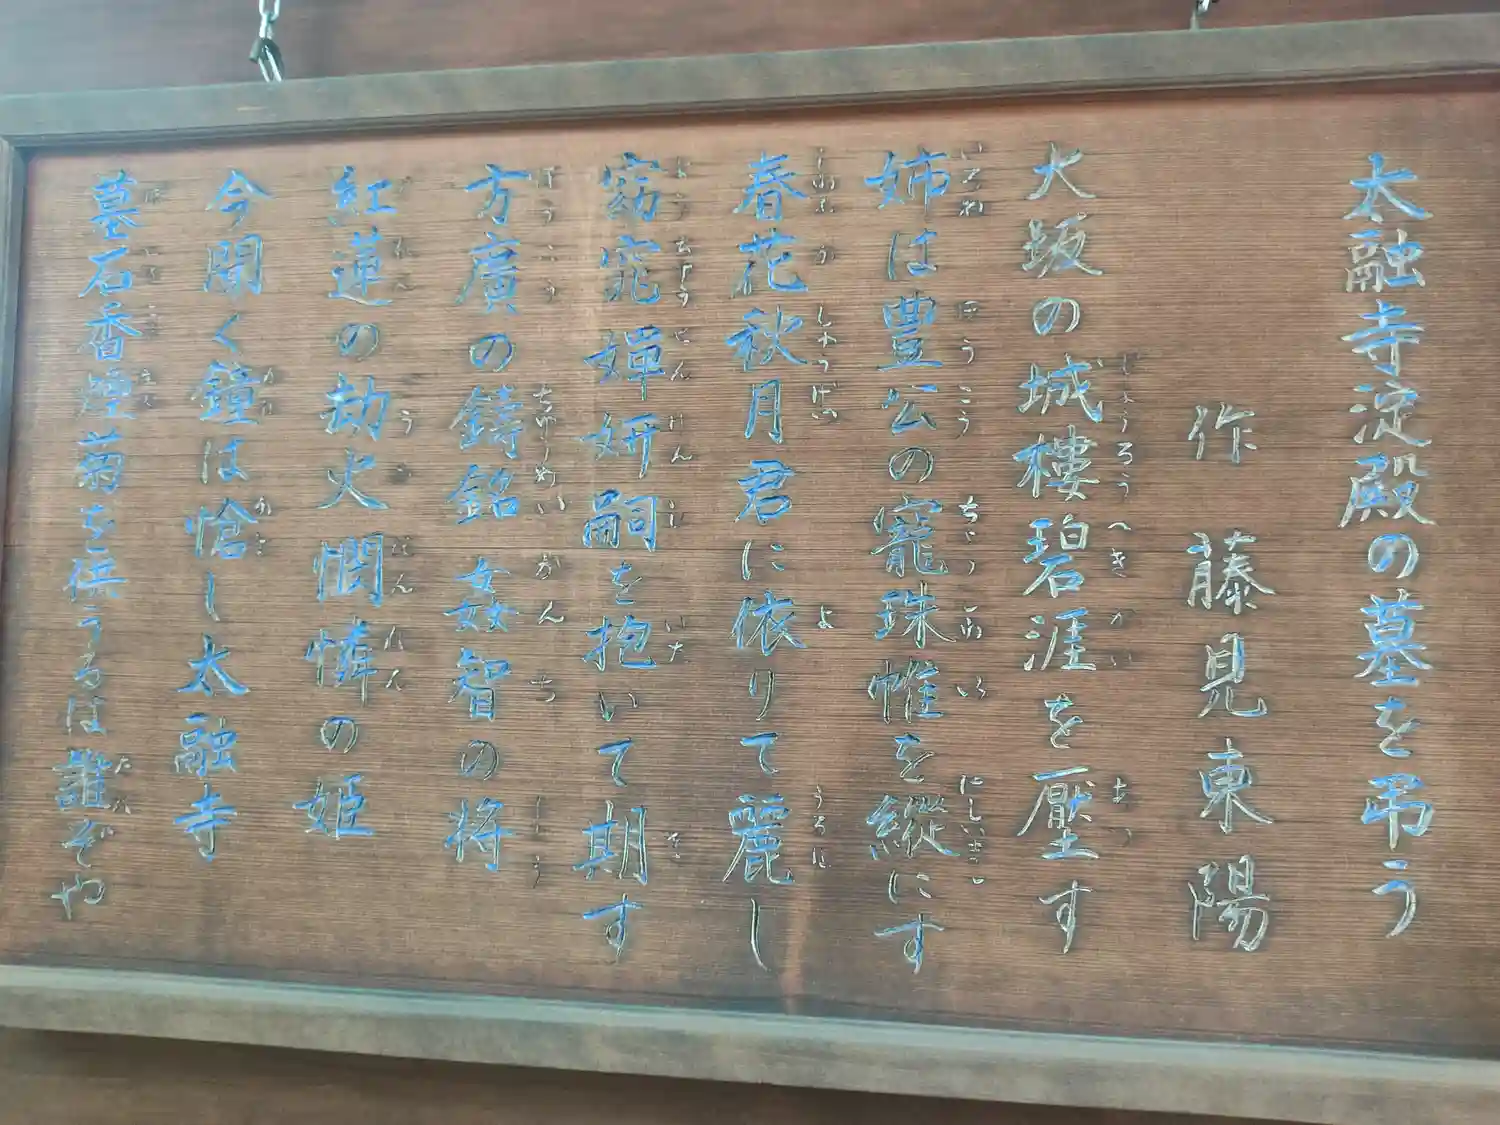 太融寺淀殿の墓を弔う
作 藤見東陽
大坂の城樓碧涯を壓す
姉は豊公の寵珠帷を縱にす
春花秋月君に依りて麗し
窈窕嬋妍嗣を抱いて期す
方廣の鋳銘姦智の将
紅蓮の劫火憫憐の姫
今聞く鐘は愴し太融寺
墓石香煙菊を供うるは誰ぞや